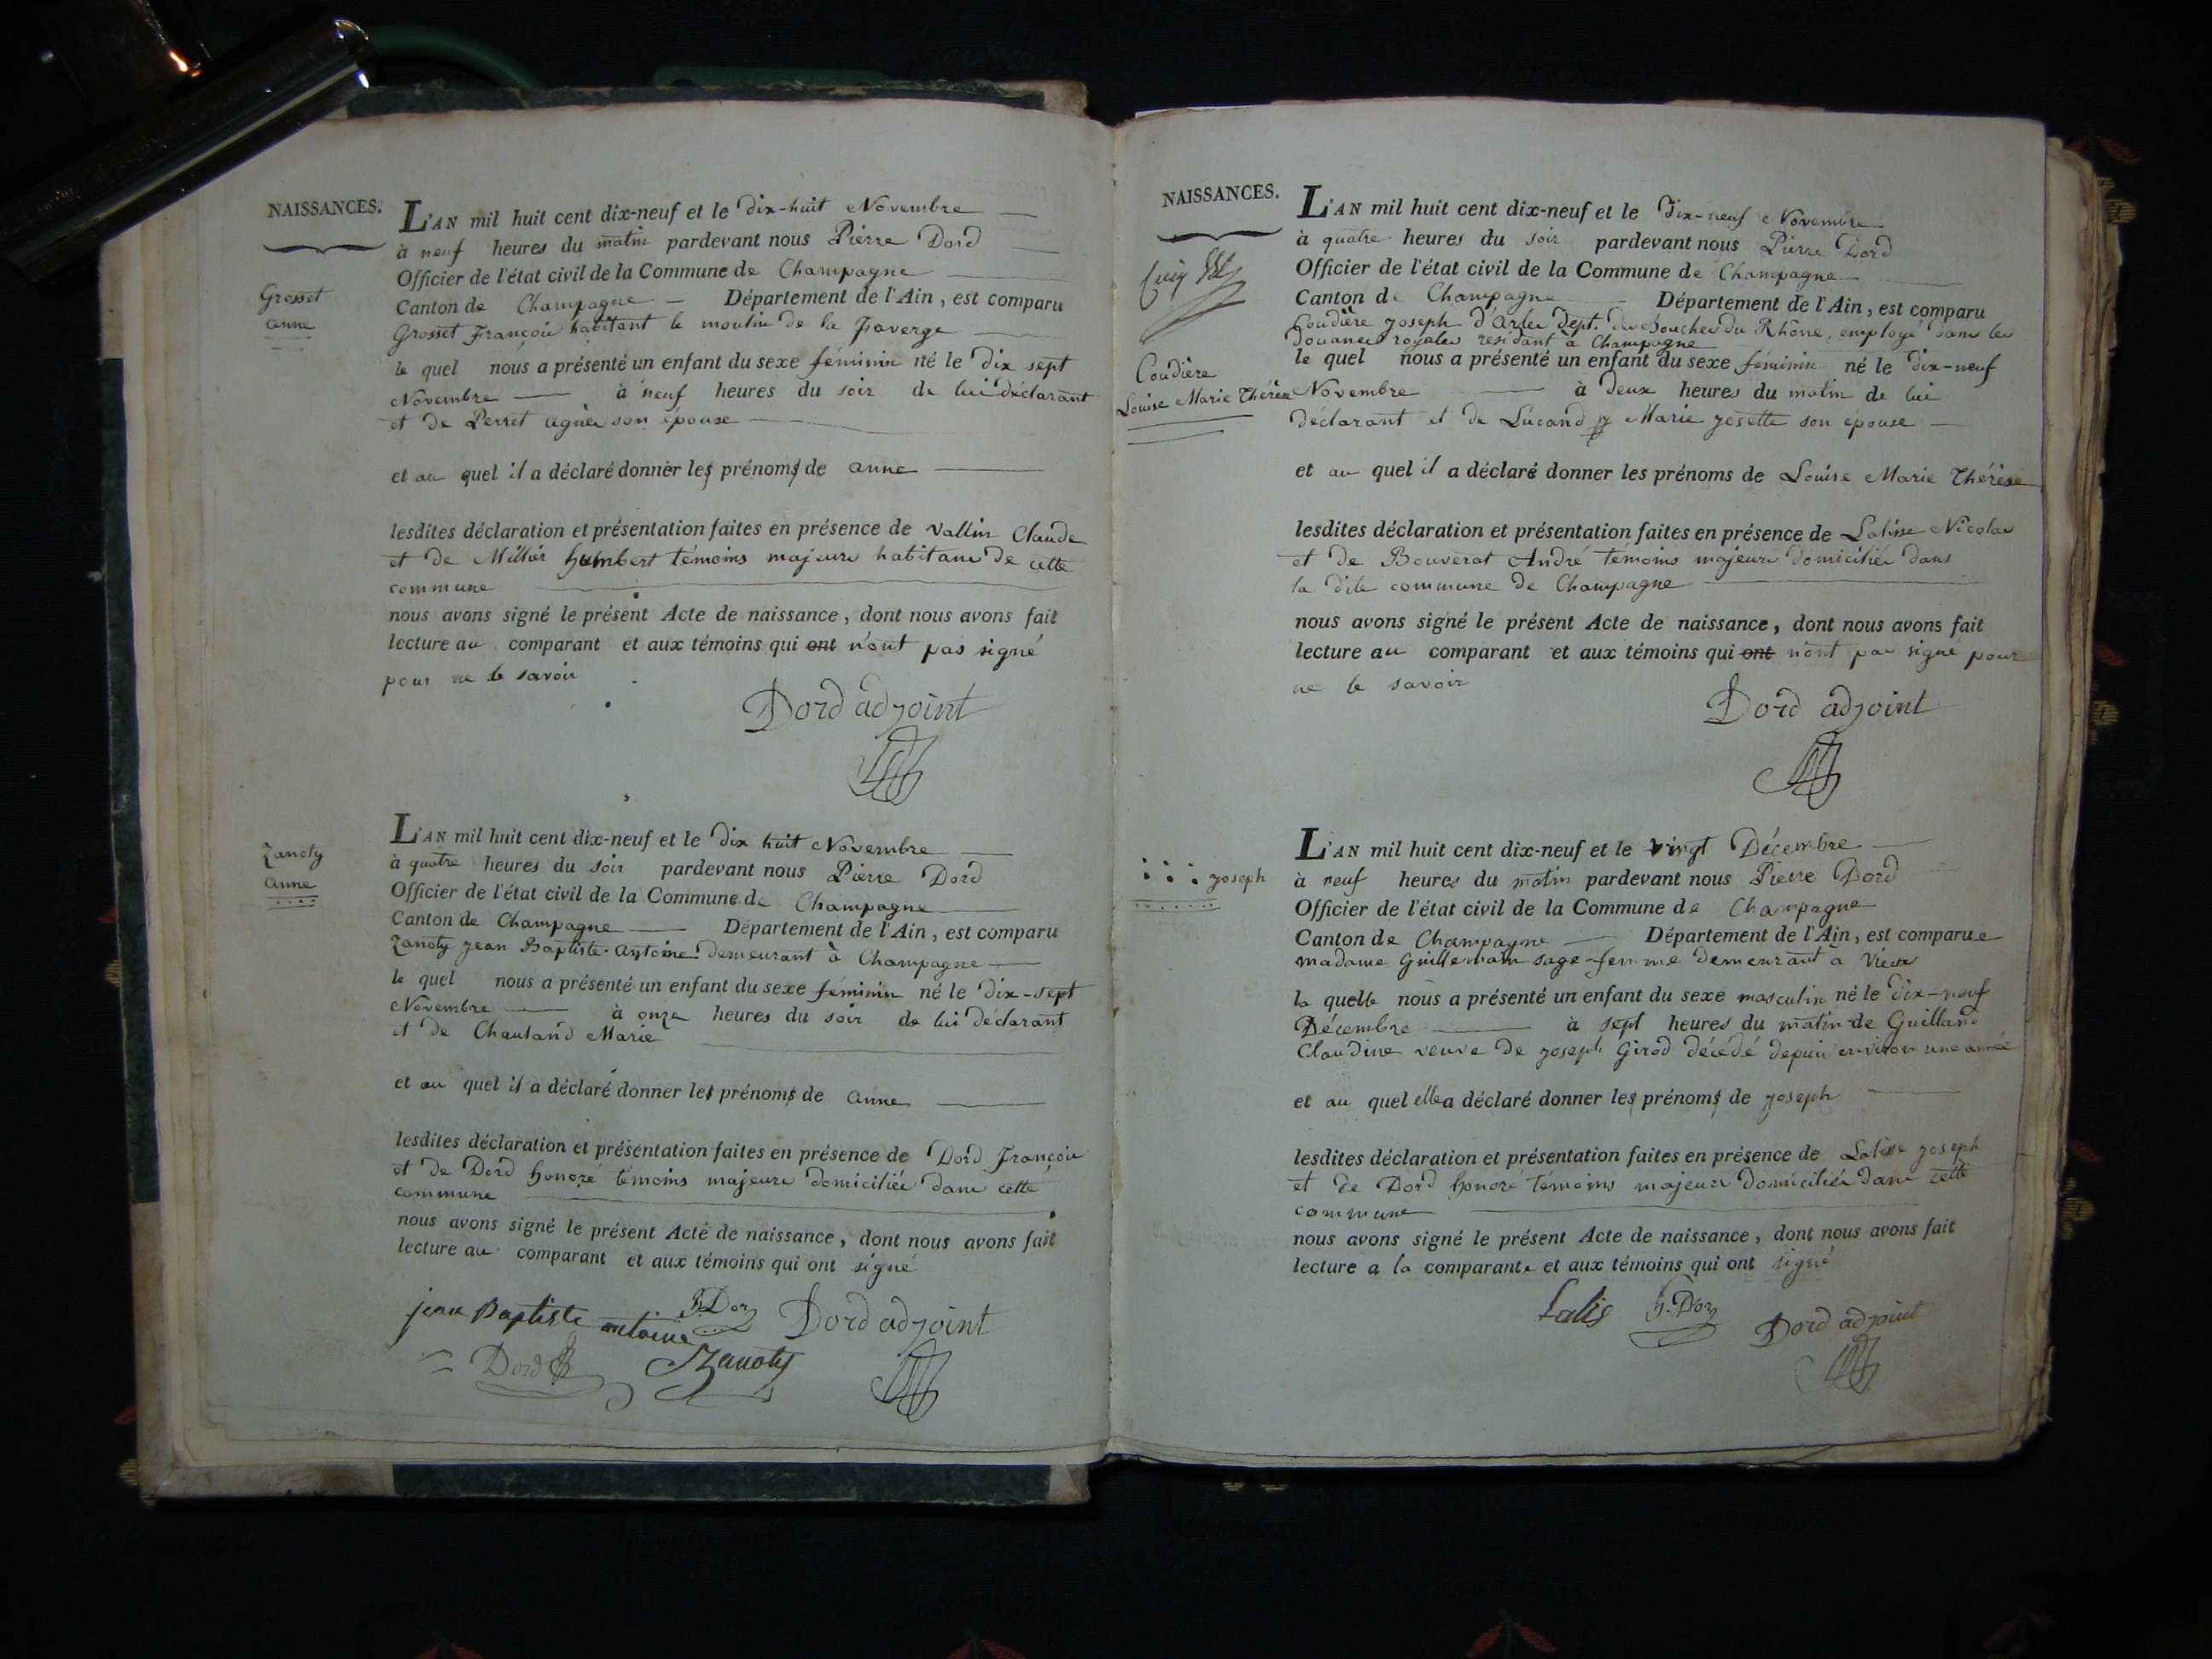 NAISSANCES.
Grosset
anne
L'AN mil huit cent dix-neuf et le dix-huit Novembre
à neuf heures du matin pardevant nous Pierre Dord
Officier de l'état civil de la Commune de Champagne
Canton de Champagne Département de l'Ain, est comparu
Grosset François habitant le moulin de la Faverge
le quel nous a présenté un enfant du sexe féminin né le dix sept
Novembre à neuf heures du soir de lui déclarant
et de Perret agnès son épouse
et au quel il a déclaré donner les prénoms de anne
lesdites déclaration et présentation faites en présence de Vallin Claude
et de Humbert témoins majeurs habitans de cette
commune
nous avons signé le présent Acte de naissance, dont nous avons fait
lecture au comparant et aux témoins qui ont n'ont pas signé
pour ne le savoir
Dord adjoint
Zanoty
anne
L'AN mil huit cent dix-neuf et le dix huit Novembre
à quatre heures du soir pardevant nous Pierre Dord
Officier de l'état civil de la Commune de Champagne
Canton de Champagne Département de l'Ain, est comparu
Zanoty jean Baptiste antoine demeurant à Champagne
le quel nous a présenté un enfant du sexe féminin né le dix-sept
Novembre à onze heures du soir de lui déclarant
et de Chauland Marie
et au quel il a déclaré donner les prénoms de anne
lesdites déclaration et présentation faites en présence de Dord François
et de Dord honoré témoins majeurs domiciliés dans cette
commune
nous avons signé le présent Acte de naissance, dont nous avons fait
lecture au comparant et aux témoins qui ont signé
jean Baptiste antoine h. Dor Dord adjoint
Dord Zanoty
NAISSANCES.
Coudière
Louise Marie Thérèse
L'AN mil huit cent dix-neuf et le dix-neuf Novembre
à quatre heures du soir pardevant nous Pierre Dord
Officier de l'état civil de la Commune de Champagne
Canton de Champagne Département de l'Ain, est comparu
Coudière joseph d'Arles dépt. des Bouches du Rhône, employé dans les
douanes royales residant à Champagne
le quel nous a présenté un enfant du sexe féminin né le dix-neuf
Novembre à deux heures du matin de lui
déclarant et de Lucand Marie josette son épouse
et au quel il a déclaré donner les prénoms de Louise Marie Thérèse
lesdites déclaration et présentation faites en présence de Lalisse Nicolas
et de Bouverat André témoins majeurs domiciliés dans
la dite commune de Champagne
nous avons signé le présent Acte de naissance, dont nous avons fait
lecture au comparant et aux témoins qui ont n'ont pas signé pour
ne le savoir
Dord adjoint
joseph
L'AN mil huit cent dix-neuf et le vingt Décembre
à neuf heures du matin pardevant nous Pierre Dord
Officier de l'état civil de la Commune de Champagne
Canton de Champagne Département de l'Ain, est comparue
madame Guillemain sage-femme demeurant à Vieu
la quelle nous a présenté un enfant du sexe masculin né le dix-neuf
Décembre à sept heures du matin de Guilland
Claudine veuve de joseph Girod décédé depuis environ une année
et au quel elle a déclaré donner les prénoms de joseph
lesdites déclaration et présentation faites en présence de Lalisse joseph
et de Dord honoré témoins majeurs domiciliés dans cette
commune
nous avons signé le présent Acte de naissance, dont nous avons fait
lecture a la comparante et aux témoins qui ont signé
Lalis h. Dor Dord adjoint